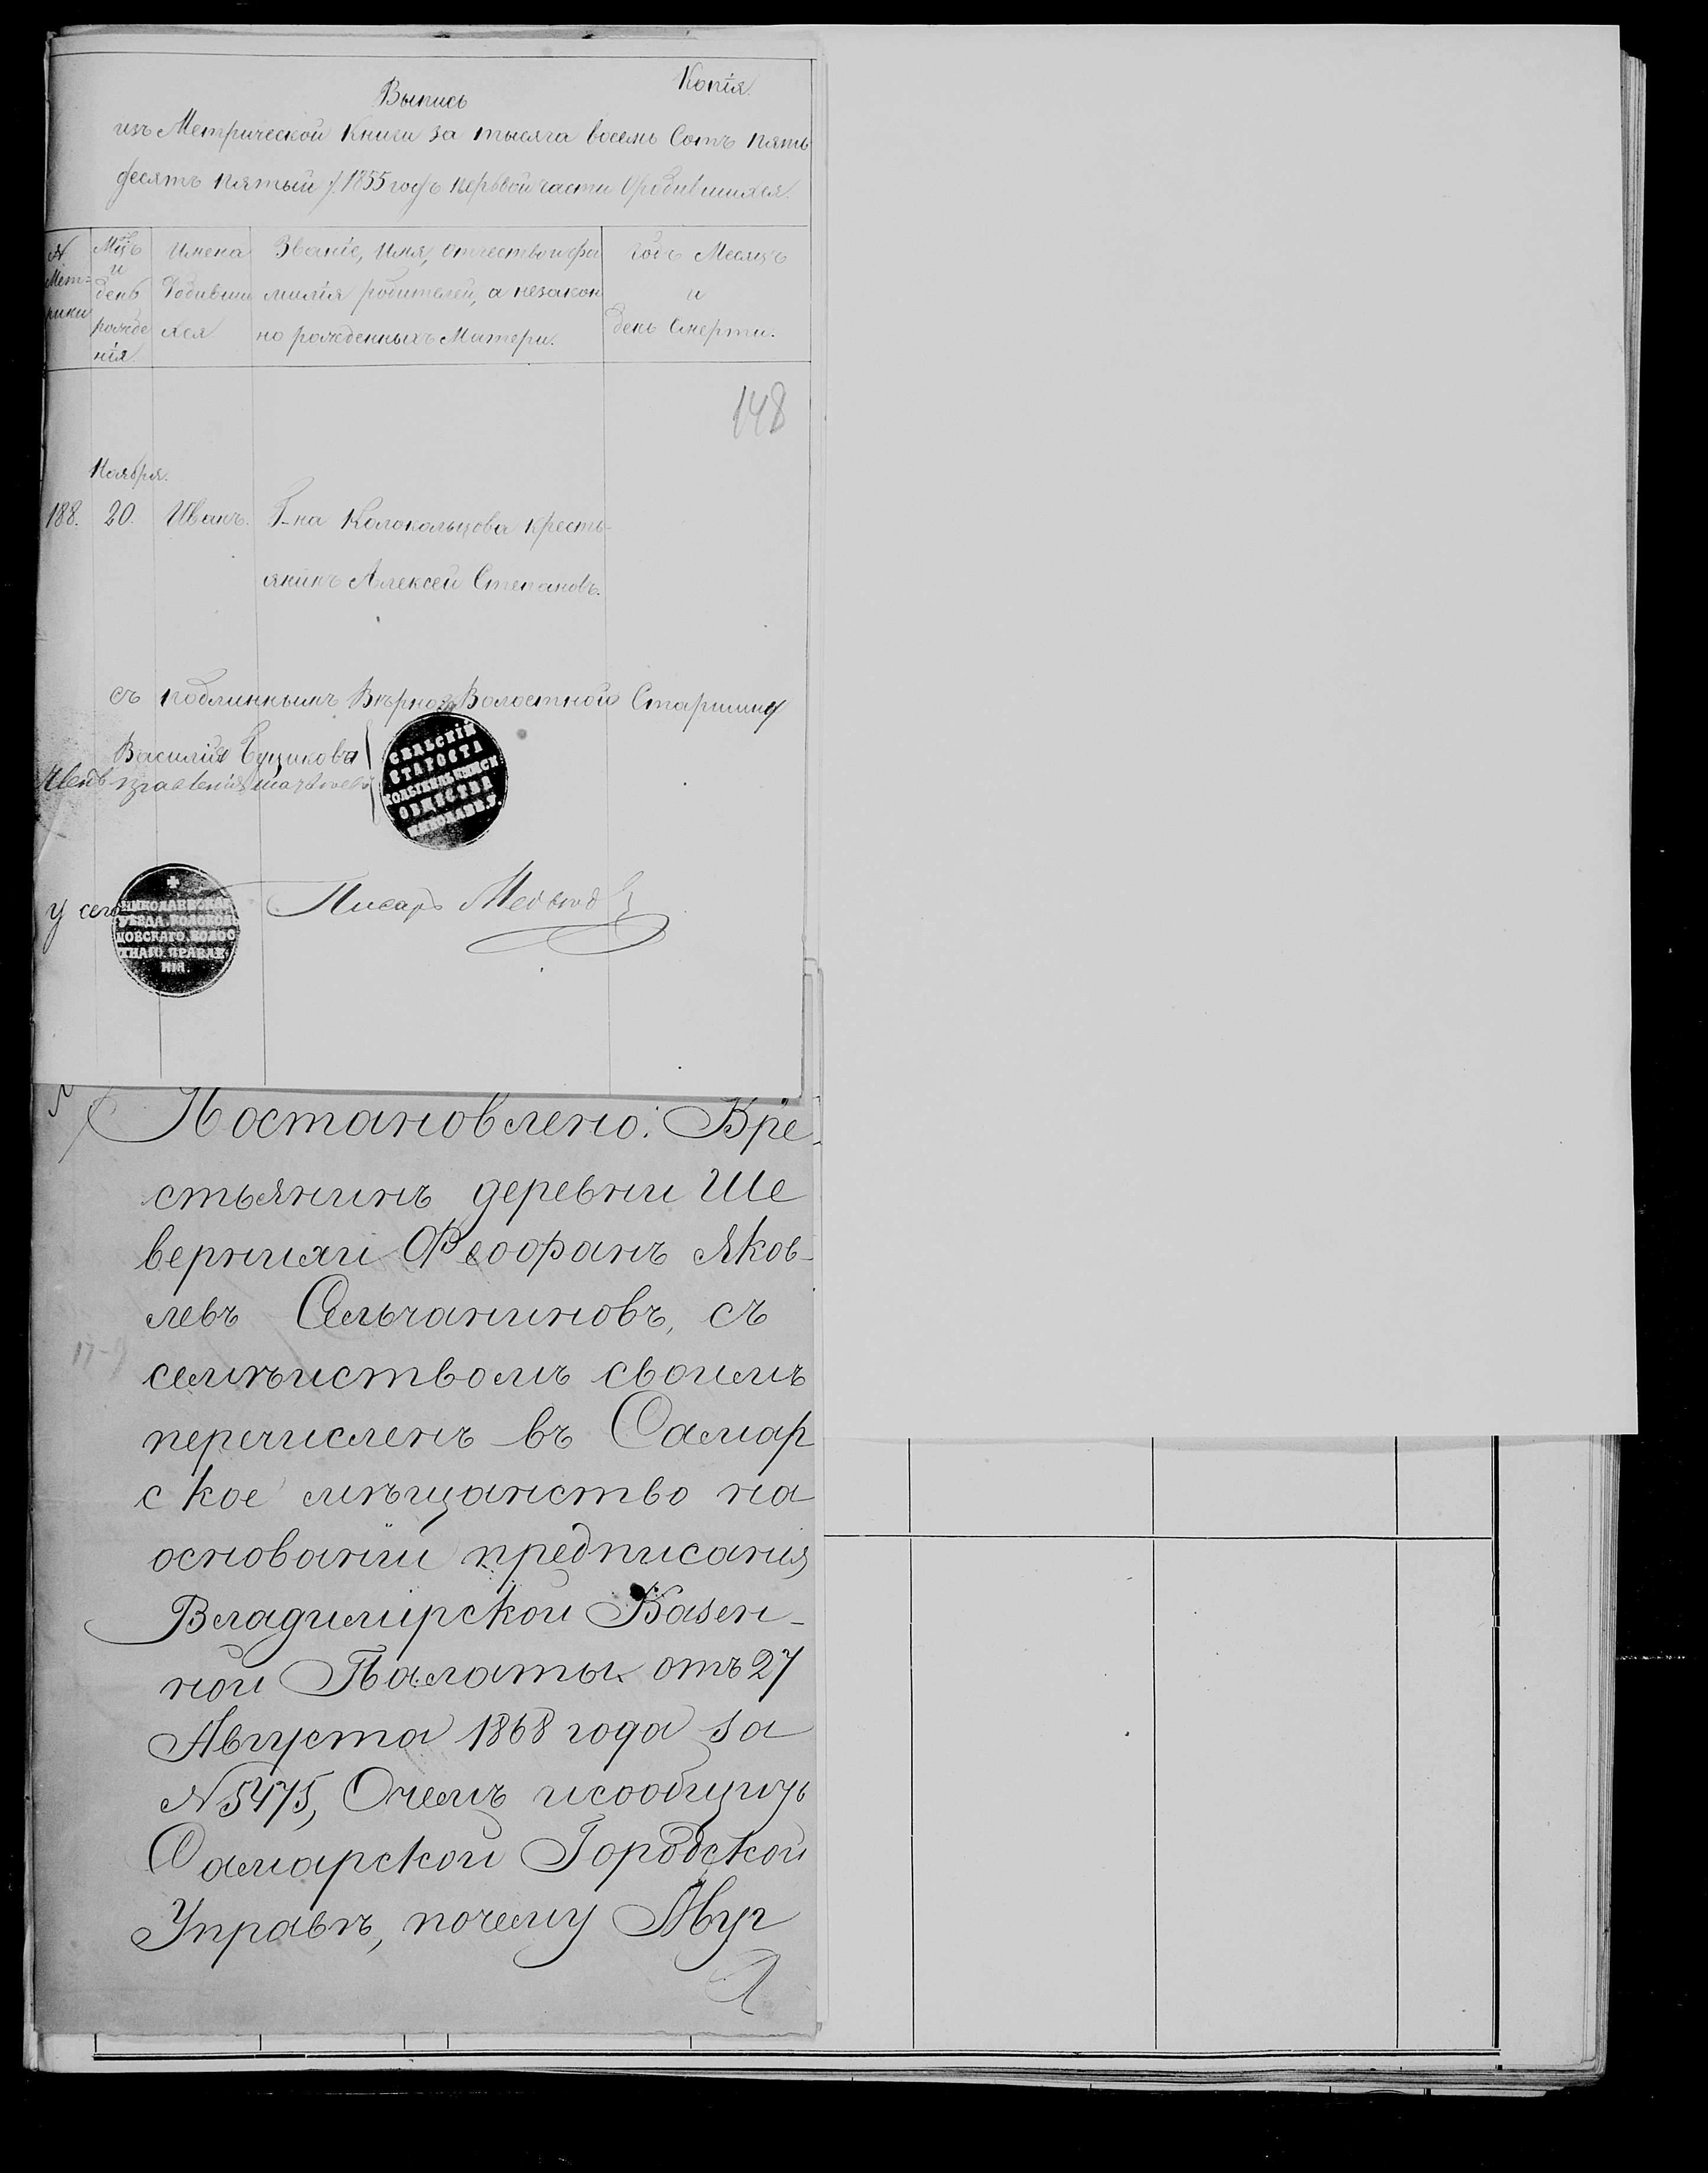 Копія.
Выпись
изъ Метрической Книги за тысяча восемь Сотъ пять
десятъ пятый /.1855 годъ первой части Ородившихся.
№ Мет=рики
Мцъ и день рожденія.
Имена Родившихся.
Званіе, Имя, отчество и фамилія родителей, а незаконно рожденныхъ Матери.
Годъ Месяцъ и день Смерти.
148
Ноября.
188. 20. Иванъ. Колокольцова кресть-
янинъ Алексей Степановъ.
съ подлиннымъ Верно: Волостной Старшина
Василий
СЕЛЬСКІЙ
СТАРОСТА
ОБЩЕСТВА
НИКОЛАЕВ.У.
у сего
Писарь
НИКОЛАЕВСКАГ
УѢЗДА.КОЛОКОЛЬ
ЦОВСКАГО.ВОЛОС
ТНАГО.ПРАВЛЕ
НІЯ.
Постановлено: Кре-
стьянинъ деревни Ше
вернихи Феофанъ Яков-
левъ Ельчаниновъ, съ
семѣйствомъ своимъ
перечисленъ въ Самар
ское мѣщанство на
основаніи предписанія
Владимірской Казен-
ной Палаты отъ 27
Августа 1868 года за
№5475, Очемъ исообщить
Самарской Городской
Управѣ, почему